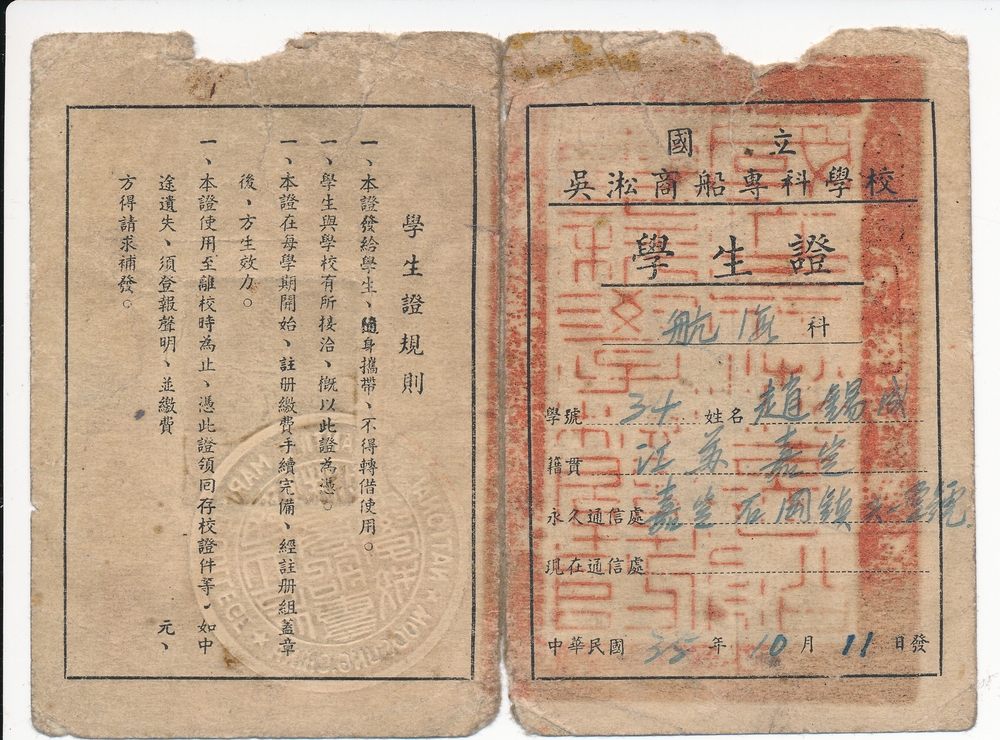 國立
吳淞商船專科學校
學生證
航海科
學號 34 姓名 趙錫成
籍貫 江蘇 嘉定
永久通信處 嘉定石岡鎮
現在通信處
中華民國 35 年 10 月 11 日發
學生證規則
一、本證發給學生、隨身攜帶、不得轉借使用。
一、學生與學校有所接洽、概以此證為憑。
一、本證在每學期開始、註册繳費手續完備、經註册組蓋章
後、方生效力。
一、本證使用至離校時為止、憑此證領回存校證件等、如中
途遺失、須登報聲明、並繳費 元、
方得請求補發。